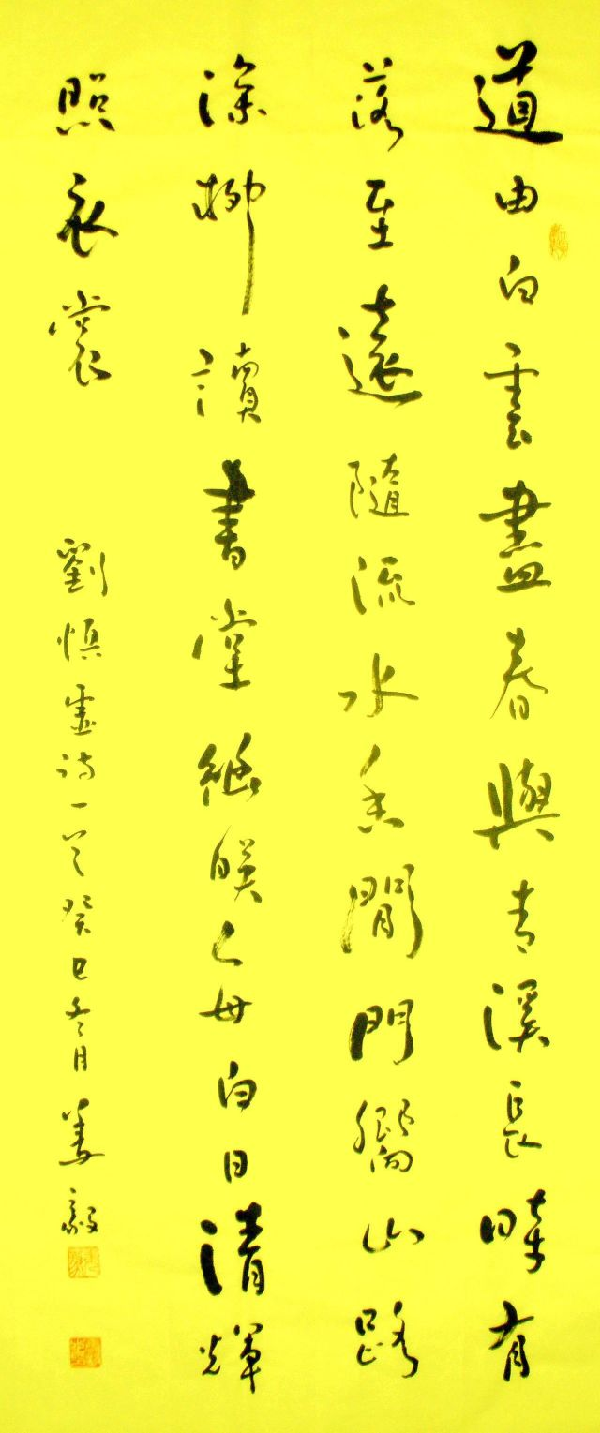 道由白雲盡春與青溪長時有
落至遠隨流水香閒門嚮山路
深柳讀書堂幽映每白日清輝
照衣裳 劉慎虛詩一首癸巳冬月姜毅